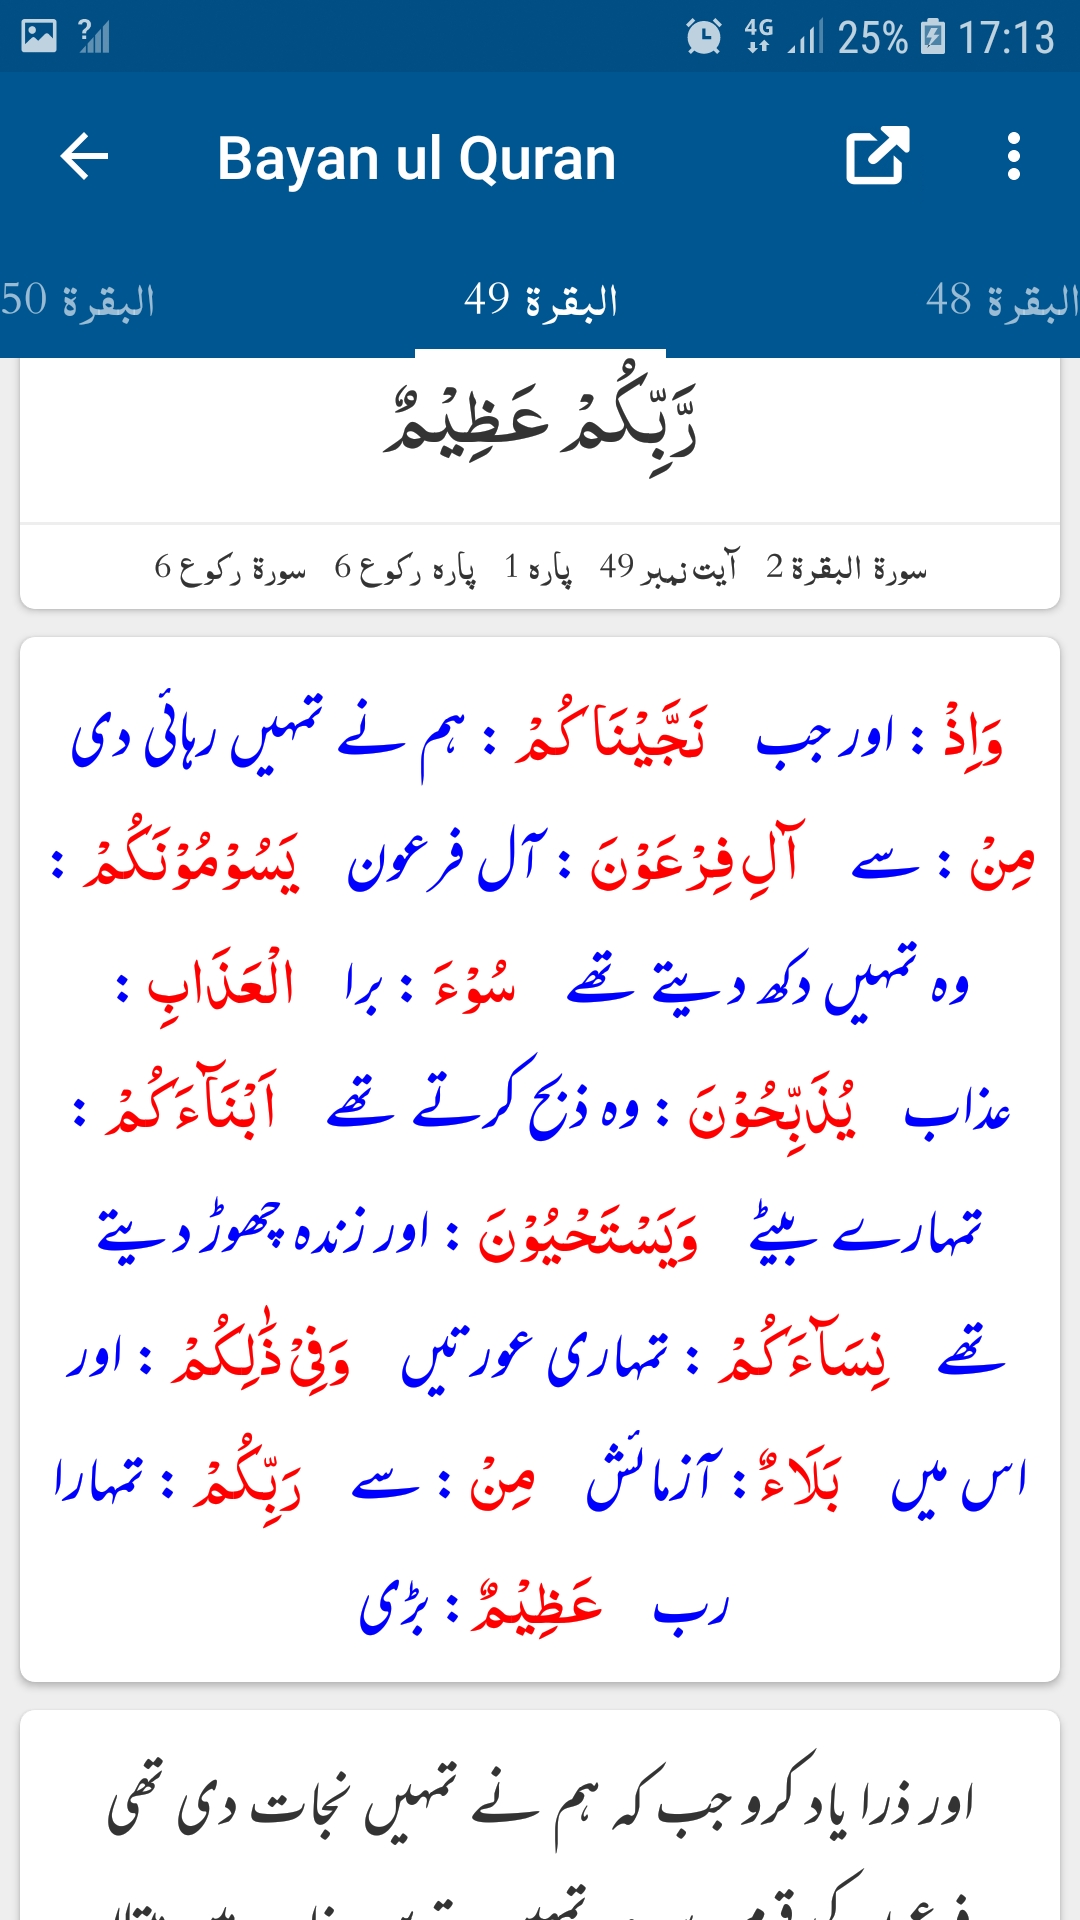 4G 25% 17:13
Bayan ul Quran
البقرة 48 البقرة 49 البقرة 50
رَّبِّكُمْ عَظِيْمٌ
سورۃ البقرۃ 2 آیت نمبر 49 پارہ 1 پارہ رکوع 6 سورۃ رکوع 6
وَاِذْ : اور جب نَجَّيْنَاكُمْ : ہم نے تمہیں رہائی دی
مِنْ : سے آلِ فِرْعَوْنَ : آل فرعون يَسُوْمُوْنَكُمْ :
وہ تمہیں دکھ دیتے تھے سُوْءَ : برا الْعَذَابِ :
عذاب يُذَبِّحُوْنَ : وہ ذبح کرتے تھے اَبْنَآءَكُمْ :
تمہارے بیٹے وَيَسْتَحْيُوْنَ : اور زندہ چھوڑ دیتے
تھے نِسَآءَكُمْ : تمہاری عورتیں وَفِيْ ذَٰلِكُمْ : اور
اس میں بَلَاءٌ : آزمائش مِنْ : سے رَبِّكُمْ : تمہارا
رب عَظِيْمٌ : بڑی
اور ذرا یاد کرو جب کہ ہم نے تمہیں نجات دی تھی